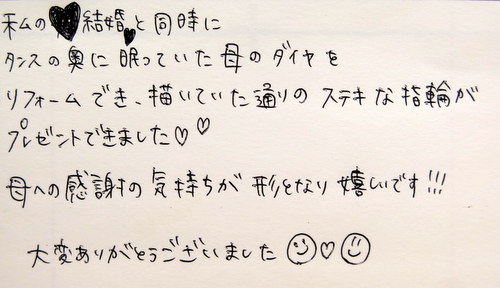 私の♥結婚♥と同時に
タンスの奥に眠っていた母のダイヤを
リフォームでき、描いていた通りのステキな指輪が
プレゼントできました♡♡
母への感謝の気持ちが形となり嬉しいです!!!
大変ありがとうございました☺♡☺